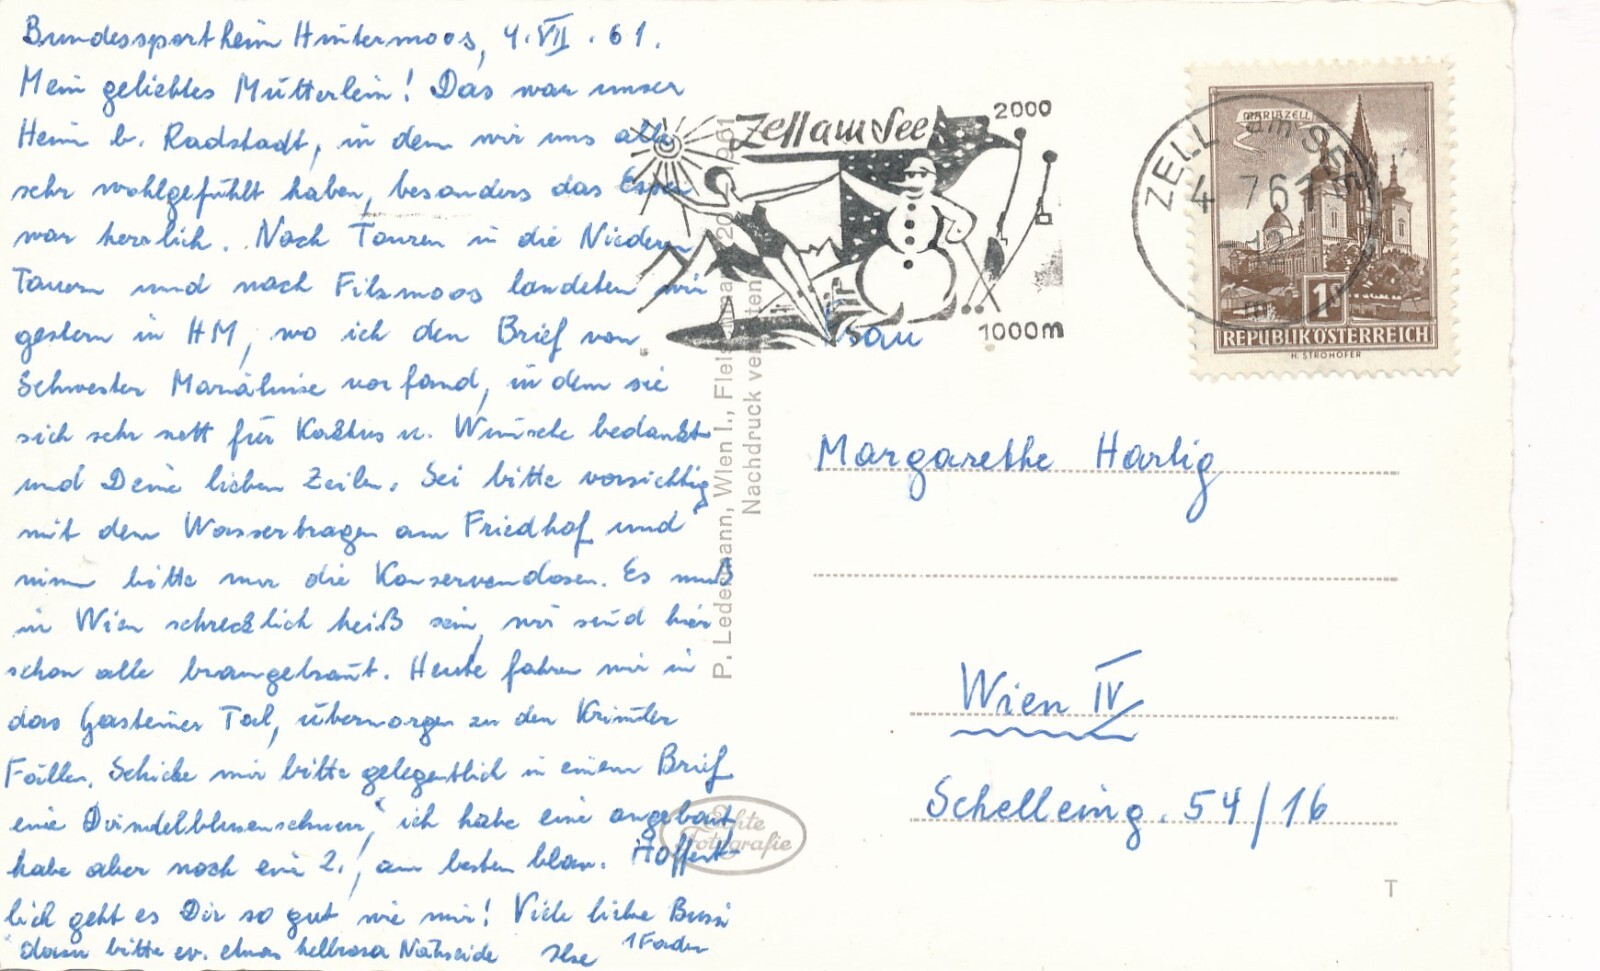 Bundessportheim Hintermoos, 4.VII.61.
Mein geliebtes Mutterlein! Das war unser
Heim b. Radstadt, in dem wir uns alle
sehr wohlgefühlt haben, besonders das Essen
war herrlich. Nach Touren in die Niedern
Tauern und nach Filzmoos landeten wir
gestern in HM, wo ich den Brief von
Schwester Marialuise vorfand, in dem sie
sich sehr nett für Kaktus u. Wünsche bedankt
und Deine lieben Zeilen. Sei bitte vorsichtig
mit dem Wassertragen am Friedhof und
nimm bitte nur die Konservendosen. Es muß
in Wien schrecklich heiß sein, wir sind hier
schon alle braungebrannt. Heute fahren wir in
das Gasteiner Tal, übermorgen zu den Krimmler
Fällen. Schicke mir bitte gelegentlich in einem Brief
eine Dirndelblusenschnur, ich habe eine angebaut
habe aber noch eine 2., am besten blau. Hoffent-
lich geht es Dir so gut wie mir! Viele liebe Bussi
dann bitte ev. etwas hellrosa Nähseide Ilse
1 Faden
Zell am See
2000
1000m
ZELL am SEE
4 7 61
MARIAZELL
1S
REPUBLIK ÖSTERREICH
H. STROHOFER
P. Ledermann, Wien I., Fleischmarkt 20 1961
Nachdruck verboten
Frau
Margarethe Hartig
Wien IV
Schelleing. 54/16
Echte
Fotografie
T